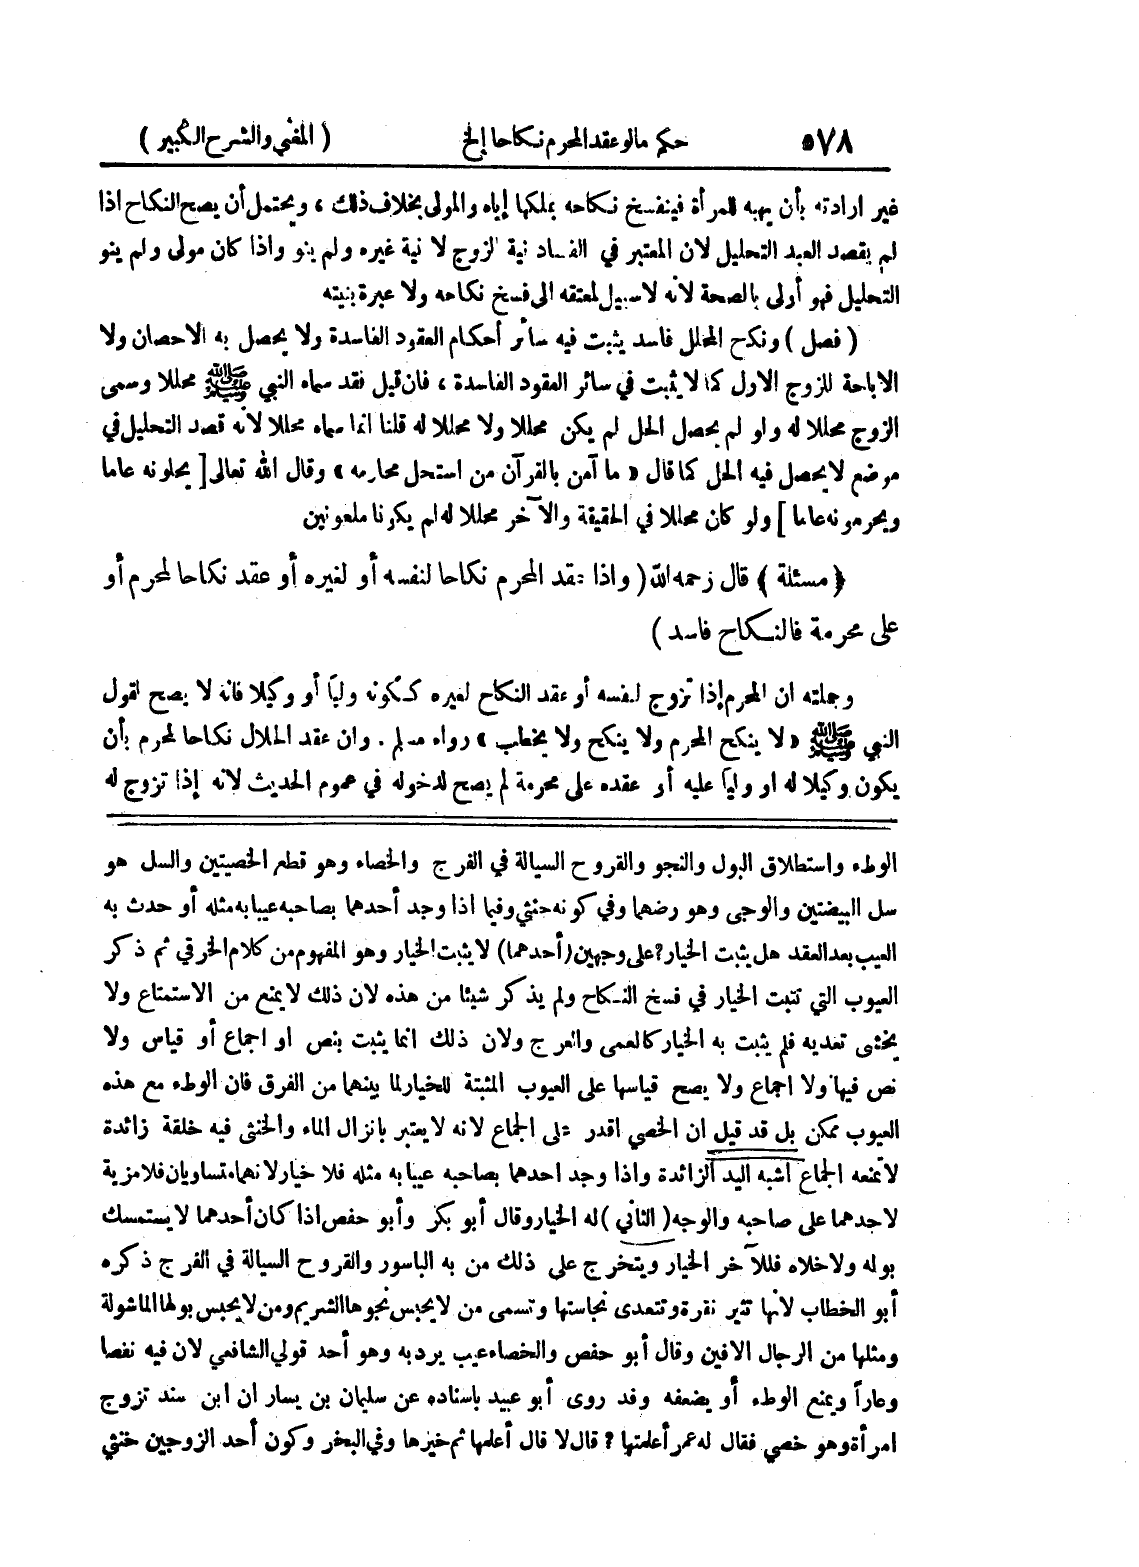 ٥٧٨ حكم مالو عقد المحرم نكاحا إلخ ( المغني والشرح الكبير )
غير ارادته بأن يهبه للمرأة فينفسخ نكاحه بملكها إياه والمولى بخلاف ذلك ، ويحتمل أن يصح النكاح اذا
لم يقصد العبد التحليل لان المعتبر في الفساد نية الزوج لا نية غيره ولم ينو واذا كان مولى ولم ينو
التحليل فهو أولى بالصحة لانه لاسبيل لمعتقه الى فسخ نكاحه ولا عبرة بنيته
( فصل ) ونكح المحلل فاسد يثبت فيه سائر أحكام العقود الفاسدة ولا يحصل به الاحصان ولا
الاباحة للزوج الاول كما لا يثبت في سائر العقود الفاسدة ، فان قيل فقد سماه النبي ﷺ محللا وسمى
الزوج محللا له ولو لم يحصل الحل لم يكن محللا ولا محللا له قلنا انما سماه محللا لانه قصد التحليل في
موضع لا يحصل فيه الحل كما قال « ما آمن بالقرآن من استحل محارمه » وقال الله تعالى [ يحلونه عاما
ويحرمونه عاما ] ولو كان محللا في الحقيقة والآخر محللا له لم يكونا ملعونين
﴿ مسئلة ﴾ قال رحمه الله ( واذا عقد المحرم نكاحا لنفسه أو لغيره أو عقد نكاحا لمحرم أو
على محرمة فالنكاح فاسد )
وجملته ان المحرم إذا تزوج لنفسه أو عقد النكاح لغيره ككونه وليا أو وكيلا فانه لا يصح لقول
النبي ﷺ « لا ينكح المحرم ولا ينكح ولا يخطب » رواه مسلم . وان عقد الحلال نكاحا لمحرم بأن
يكون وكيلا له او وليا عليه أو عقده على محرمة لم يصح لدخوله في عموم الحديث لانه إذا تزوج له
الوطء واستطلاق البول والنجو والقروح السيالة في الفرج والخصاء وهو قطع الخصيتين والسل هو
سل البيضتين والوجى وهو رضهما وفي كونه خنثى وفيما اذا وجد أحدهما بصاحبه عيبا به مثله أو حدث به
العيب بعد العقد هل يثبت الخيار ؟ على وجهين ( أحدهما ) لا يثبت الخيار وهو المفهوم من كلام الخرقي ثم ذكر
العيوب التي تثبت الخيار في فسخ النكاح ولم يذكر شيئا من هذه لان ذلك لا يمنع من الاستمتاع ولا
يخشى تعديه فلم يثبت به الخيار كالعمى والعرج ولان ذلك انما يثبت بنص او اجماع أو قياس ولا
نص فيها ولا اجماع ولا يصح قياسها على العيوب المثبتة للخيار لما بينهما من الفرق فان الوطء مع هذه
العيوب ممكن بل قد قيل ان الخصي اقدر على الجماع لانه لا يعتبر بانزال الماء والخنثى فيه خلقة زائدة
لا تمنعه الجماع أشبه اليد الزائدة واذا وجد احدهما بصاحبه عيبا به مثله فلا خيار لانهما متساويان فلا مزية
لاحدهما على صاحبه والوجه ( الثاني ) له الخيار وقال أبو بكر وأبو حفص اذا كان أحدهما لا يستمسك
بوله ولا خلاه فللآخر الخيار ويتخرج على ذلك من به الباسور والقروح السيالة في الفرج ذكره
أبو الخطاب لانها تثير نفرة وتتعدى نجاستها وتسمى من لا يحبس نجوها الشريم ومن لا يحبس بولها الماشولة
ومثلها من الرجال الافين وقال أبو حفص والخصاء عيب يرد به وهو أحد قولي الشافعي لان فيه نقصا
وعارا ويمنع الوطء أو يضعفه وقد روى أبو عبيد باسناده عن سليمان بن يسار ان ابن سند تزوج
امرأة وهو خصي فقال له عمر أعلمتها ؟ قال لا قال أعلمها ثم خيرها وفي البخر وكون أحد الزوجين خنثى